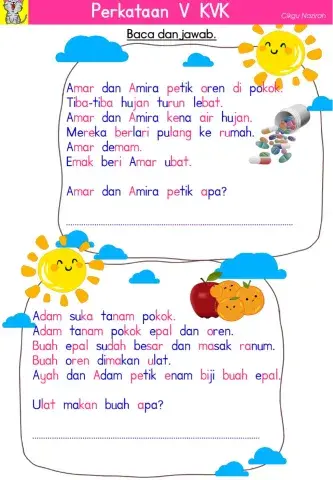 Perkataan V KVK
Cikgu Nazirah
Baca dan jawab.
Amar dan Amira petik oren di pokok.
Tiba-tiba hujan turun lebat.
Amar dan Amira kena air hujan.
Mereka berlari pulang ke rumah.
Amar demam.
Emak beri Amar ubat.
Amar dan Amira petik apa?
Adam suka tanam pokok.
Adam tanam pokok epal dan oren.
Buah epal sudah besar dan masak ranum.
Buah oren dimakan ulat.
Ayah dan Adam petik enam biji buah epal.
Ulat makan buah apa?